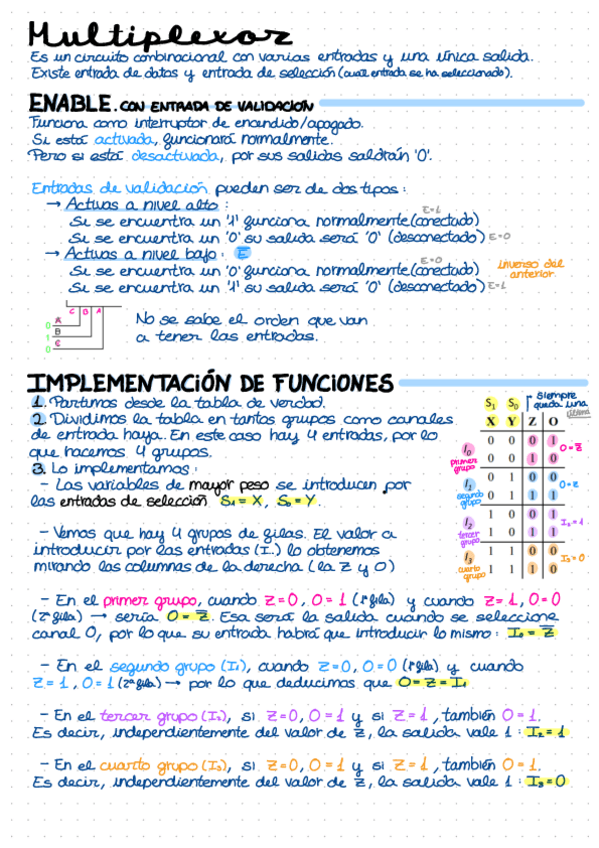 Multiplexor
Es un circuito combinacional con varias entradas y una única salida.
Existe entrada de datos y entrada de selección (cual entrada se ha seleccionado).
ENABLE. CON ENTRADA DE VALIDACIÓN
Funciona como interruptor de encendido/apagado.
Si está activada, funcionará normalmente.
Pero si está desactivada, por sus salidas saldrán '0'.
Entradas de validación pueden ser de dos tipos:
→ Activas a nivel alto :
Si se encuentra un '1' funciona normalmente (conectado) E=1
Si se encuentra un '0' su salida será '0' (desconectado) E=0
→ Activas a nivel bajo : E
Si se encuentra un '0' funciona normalmente (conectado) E=0
Si se encuentra un '1' su salida será '0' (desconectado) E=1
inverso del
anterior.
C B A
0 A
1 B
0 C
No se sabe el orden que van
a tener las entradas.
IMPLEMENTACIÓN DE FUNCIONES
1. Partimos desde la tabla de verdad.
2. Dividimos la tabla en tantos grupos como canales
de entrada haya. En este caso hay 4 entradas, por lo
que hacemos 4 grupos.
3. Lo implementamos:
- Las variables de mayor peso se introducen por
las entradas de selección: S₁ = X, S₀ = Y.
- Vemos que hay 4 grupos de filas. El valor a
introducir por las entradas (I.) lo obtenemos
mirando las columnas de la derecha (la Z y O)
S₁ S₀ siempre
queda una
X Y Z O
I₀ primer grupo
0 0 0 1
0 0 1 0
O = Z̅
I₁ segundo grupo
0 1 0 0
0 1 1 1
O = Z
I₂ tercer grupo
1 0 0 1
1 0 1 1
I₂ = 1
I₃ cuarto grupo
1 1 0 0
1 1 1 0
I₃ = 0
- En el primer grupo, cuando Z=0, O=1 (1ª fila) y cuando Z=1, O=0
(2ª fila) → sería O = Z̅. Esa será la salida cuando se seleccione
canal 0, por lo que su entrada habrá que introducir lo mismo: I₀ = Z̅
- En el segundo grupo (I₁), cuando Z=0, O=0 (1ª fila) y cuando
Z=1, O=1 (2ª fila) → por lo que deducimos que O=Z=I₁
- En el tercer grupo (I₂), si Z=0, O=1 y si Z=1, también O=1.
Es decir, independientemente del valor de Z, la salida vale 1: I₂=1
- En el cuarto grupo (I₃), si Z=0, O=1 y si Z=1, también O=1.
Es decir, independientemente del valor de Z, la salida vale 1: I₃=0